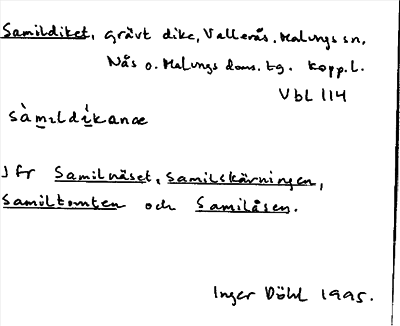 Samildiket, grävt dike, Vallerås, Malungs sn,
Nås o. Malungs doms. tg. Kopp. l.
Vbl 114
sàmıldı̀kanæ
Jfr Samilnäset, Samilskärningen,
Samiltomten och Samilåsen.
Inger Döhl 1995.